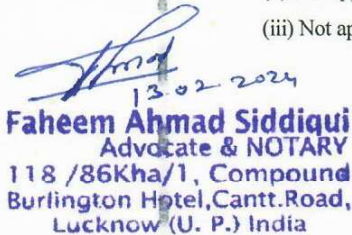 (iii) Not ap
13.02.2024
Faheem Ahmad Siddiqui
Advocate & NOTARY
118 /86Kha/1, Compound
Burlington Hotel,Cantt.Road,
Lucknow (U. P.) India